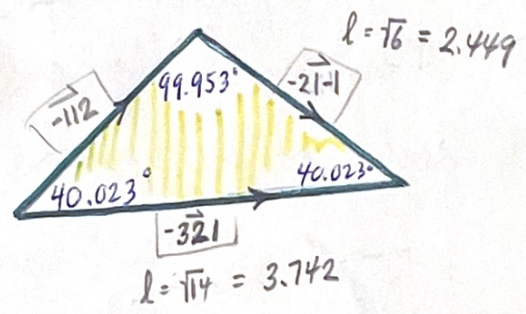 l = √6 = 2.449
-112
99.953°
-21-1
40.023°
40.023°
-321
l = √14 = 3.742